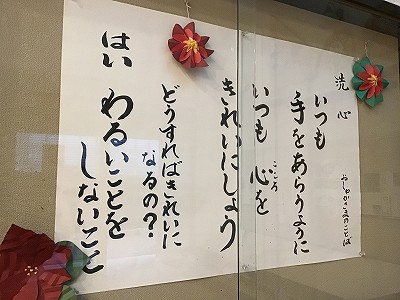 洗心
おしゃかさまのことば
いつも
手をあらうように
いつも心を
こころ
きれいにしよう
どうすればきれいに
なるの？
はい わるいことを
しないこと